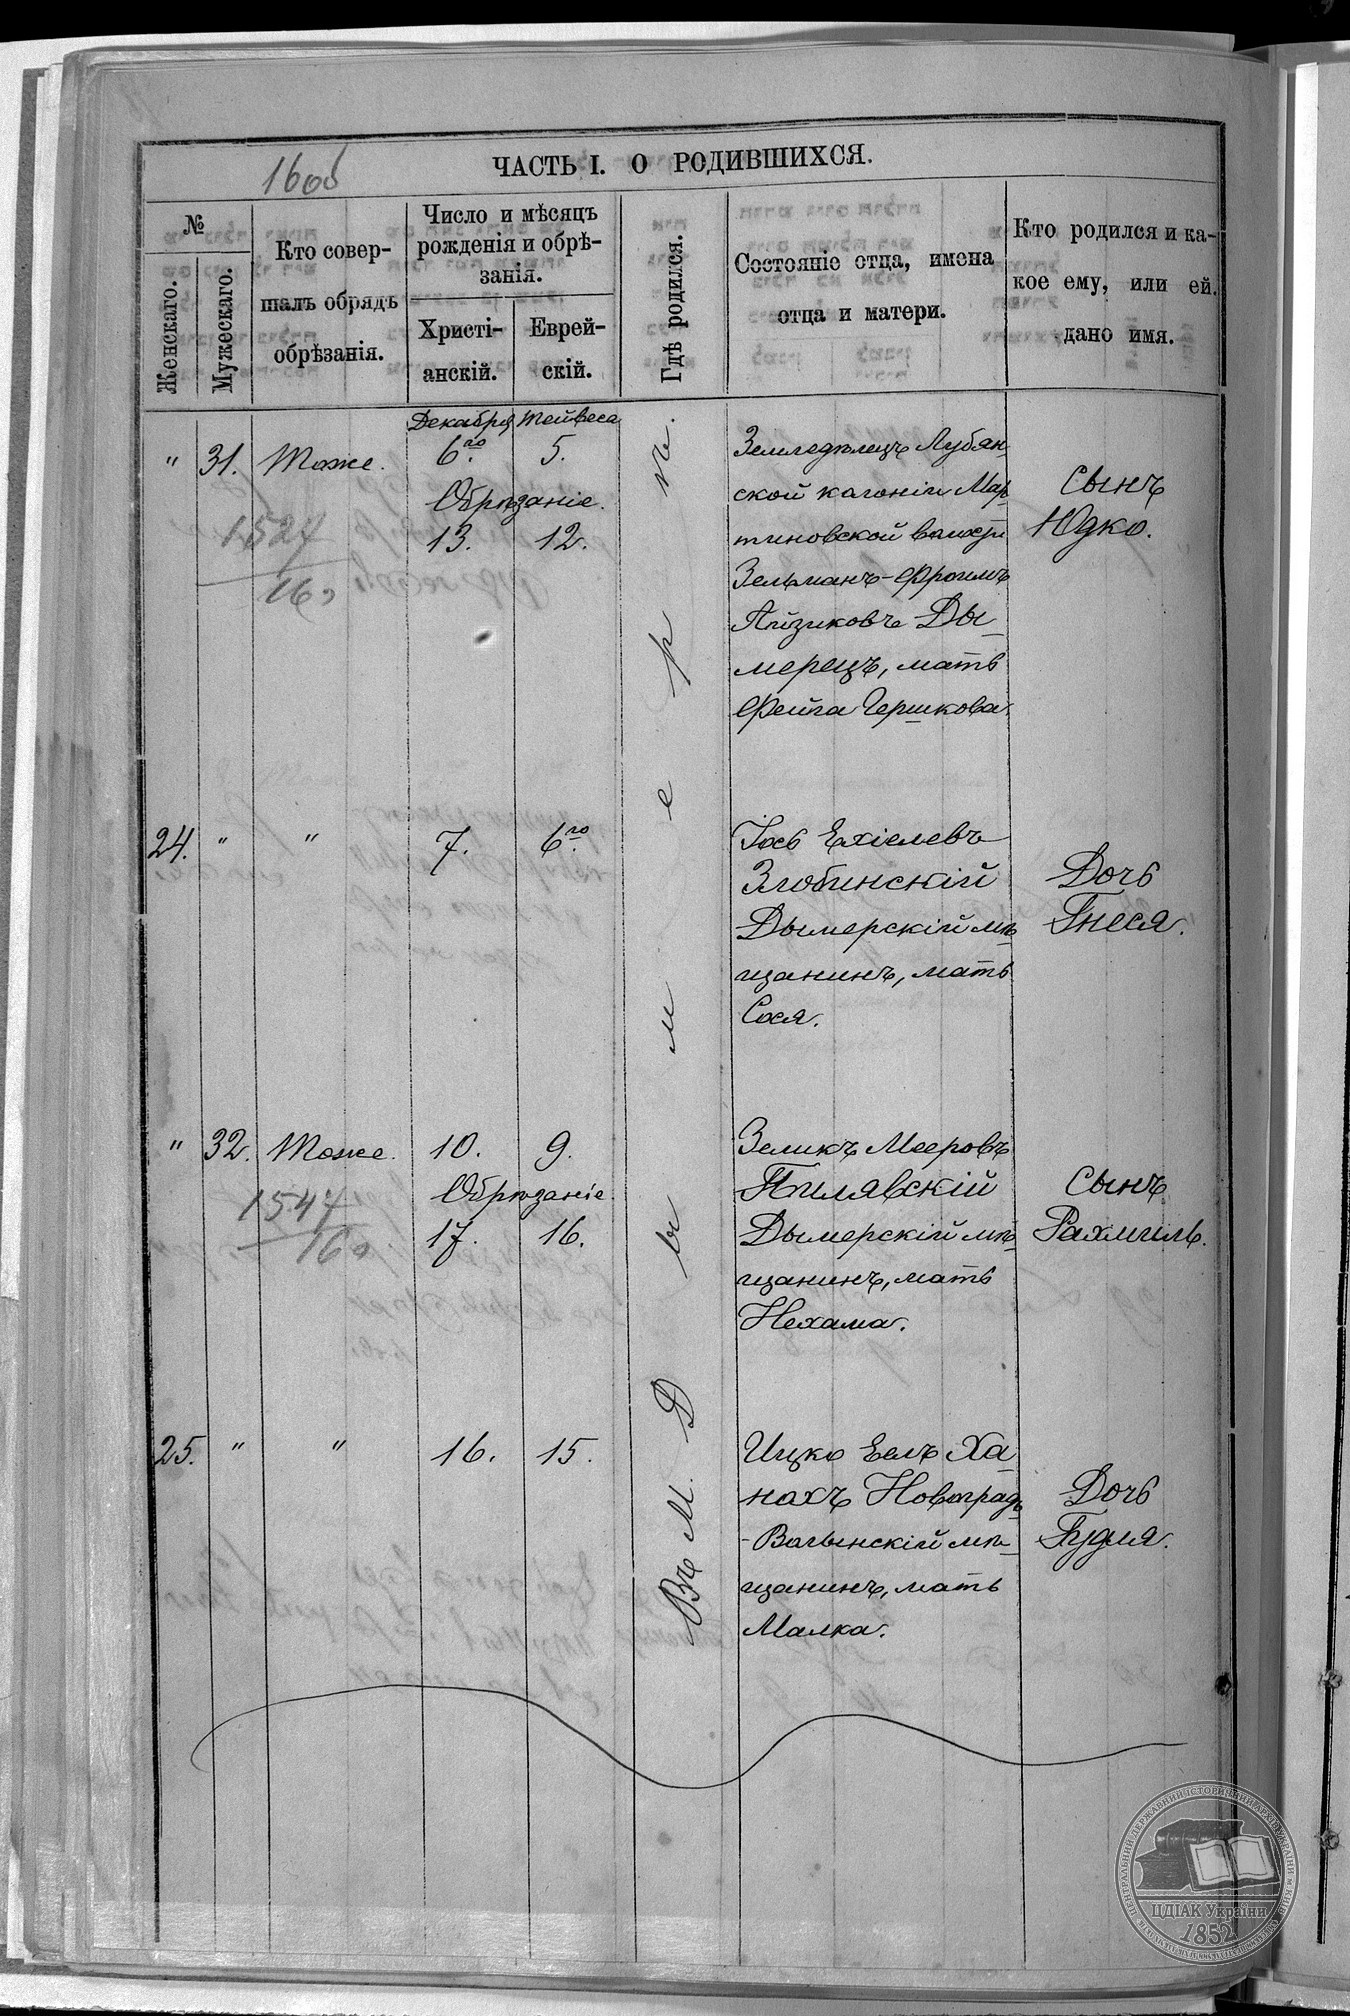 160об
ЧАСТЬ I. О РОДИВШИХСЯ.
№
Женскаго.
Мужескаго.
Кто совер-
шалъ обрядъ
обрѣзанія.
Число и мѣсяцъ
рожденія и обрѣ-
занія.
Христі-
анскій.
Еврей-
скій.
Гдѣ родился.
Состояніе отца, имена
отца и матери.
Кто родился и ка-
кое ему, или ей,
дано имя.
Въ М. Дымерѣ.
Декабря Тейвеса
" 31. Тоже. 6го. 5.
Обрѣзаніе.
13. 12.
1527
160
Земледѣлецъ Лубян-
ской колоніи Мар-
тиновской волости
Зельманъ-Фроимъ
Айзиковъ Ды-
мерецъ, мать
Фейга Гершкова.
Сынъ
Юдко.
24. " " 7. 6го.
Іось Ехіелевъ
Злобинскій
Дымерскій мѣ-
щанинъ, мать
Сося.
Дочь
Гнеся.
" 32. Тоже. 10. 9.
Обрѣзаніе.
17. 16.
1547
160
Зеликъ Мееровъ
Пилявскій
Дымерскій мѣ-
щанинъ, мать
Нехама.
Сынъ
Рахмиль.
25. " " 16. 15.
Ицко Еель Ха-
нохъ Новоградъ-
-Волынскій мѣ-
щанинъ, мать
Малка.
Дочь
Гудля.
ЦДІАК України
1852